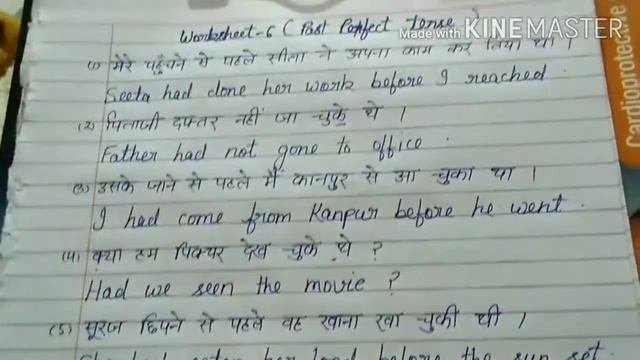 Made with KINEMASTER
Worksheet-6 (Past Perfect Tense
(1) मेरे पहुँचने से पहले सीता ने अपना काम कर लिया था ।
Seeta had done her work before I reached.
(2) पिताजी दफ्तर नहीं जा चुके थे ।
Father had not gone to office.
(3) उसके जाने से पहले मैं कानपुर से आ चुका था ।
I had come from Kanpur before he went.
(4) क्या हम पिक्चर देख चुके थे ?
Had we seen the movie ?
(5) सूरज छिपने से पहले वह खाना खा चुकी थी ।
had eaten her food before the sun set.
Cardioprotec